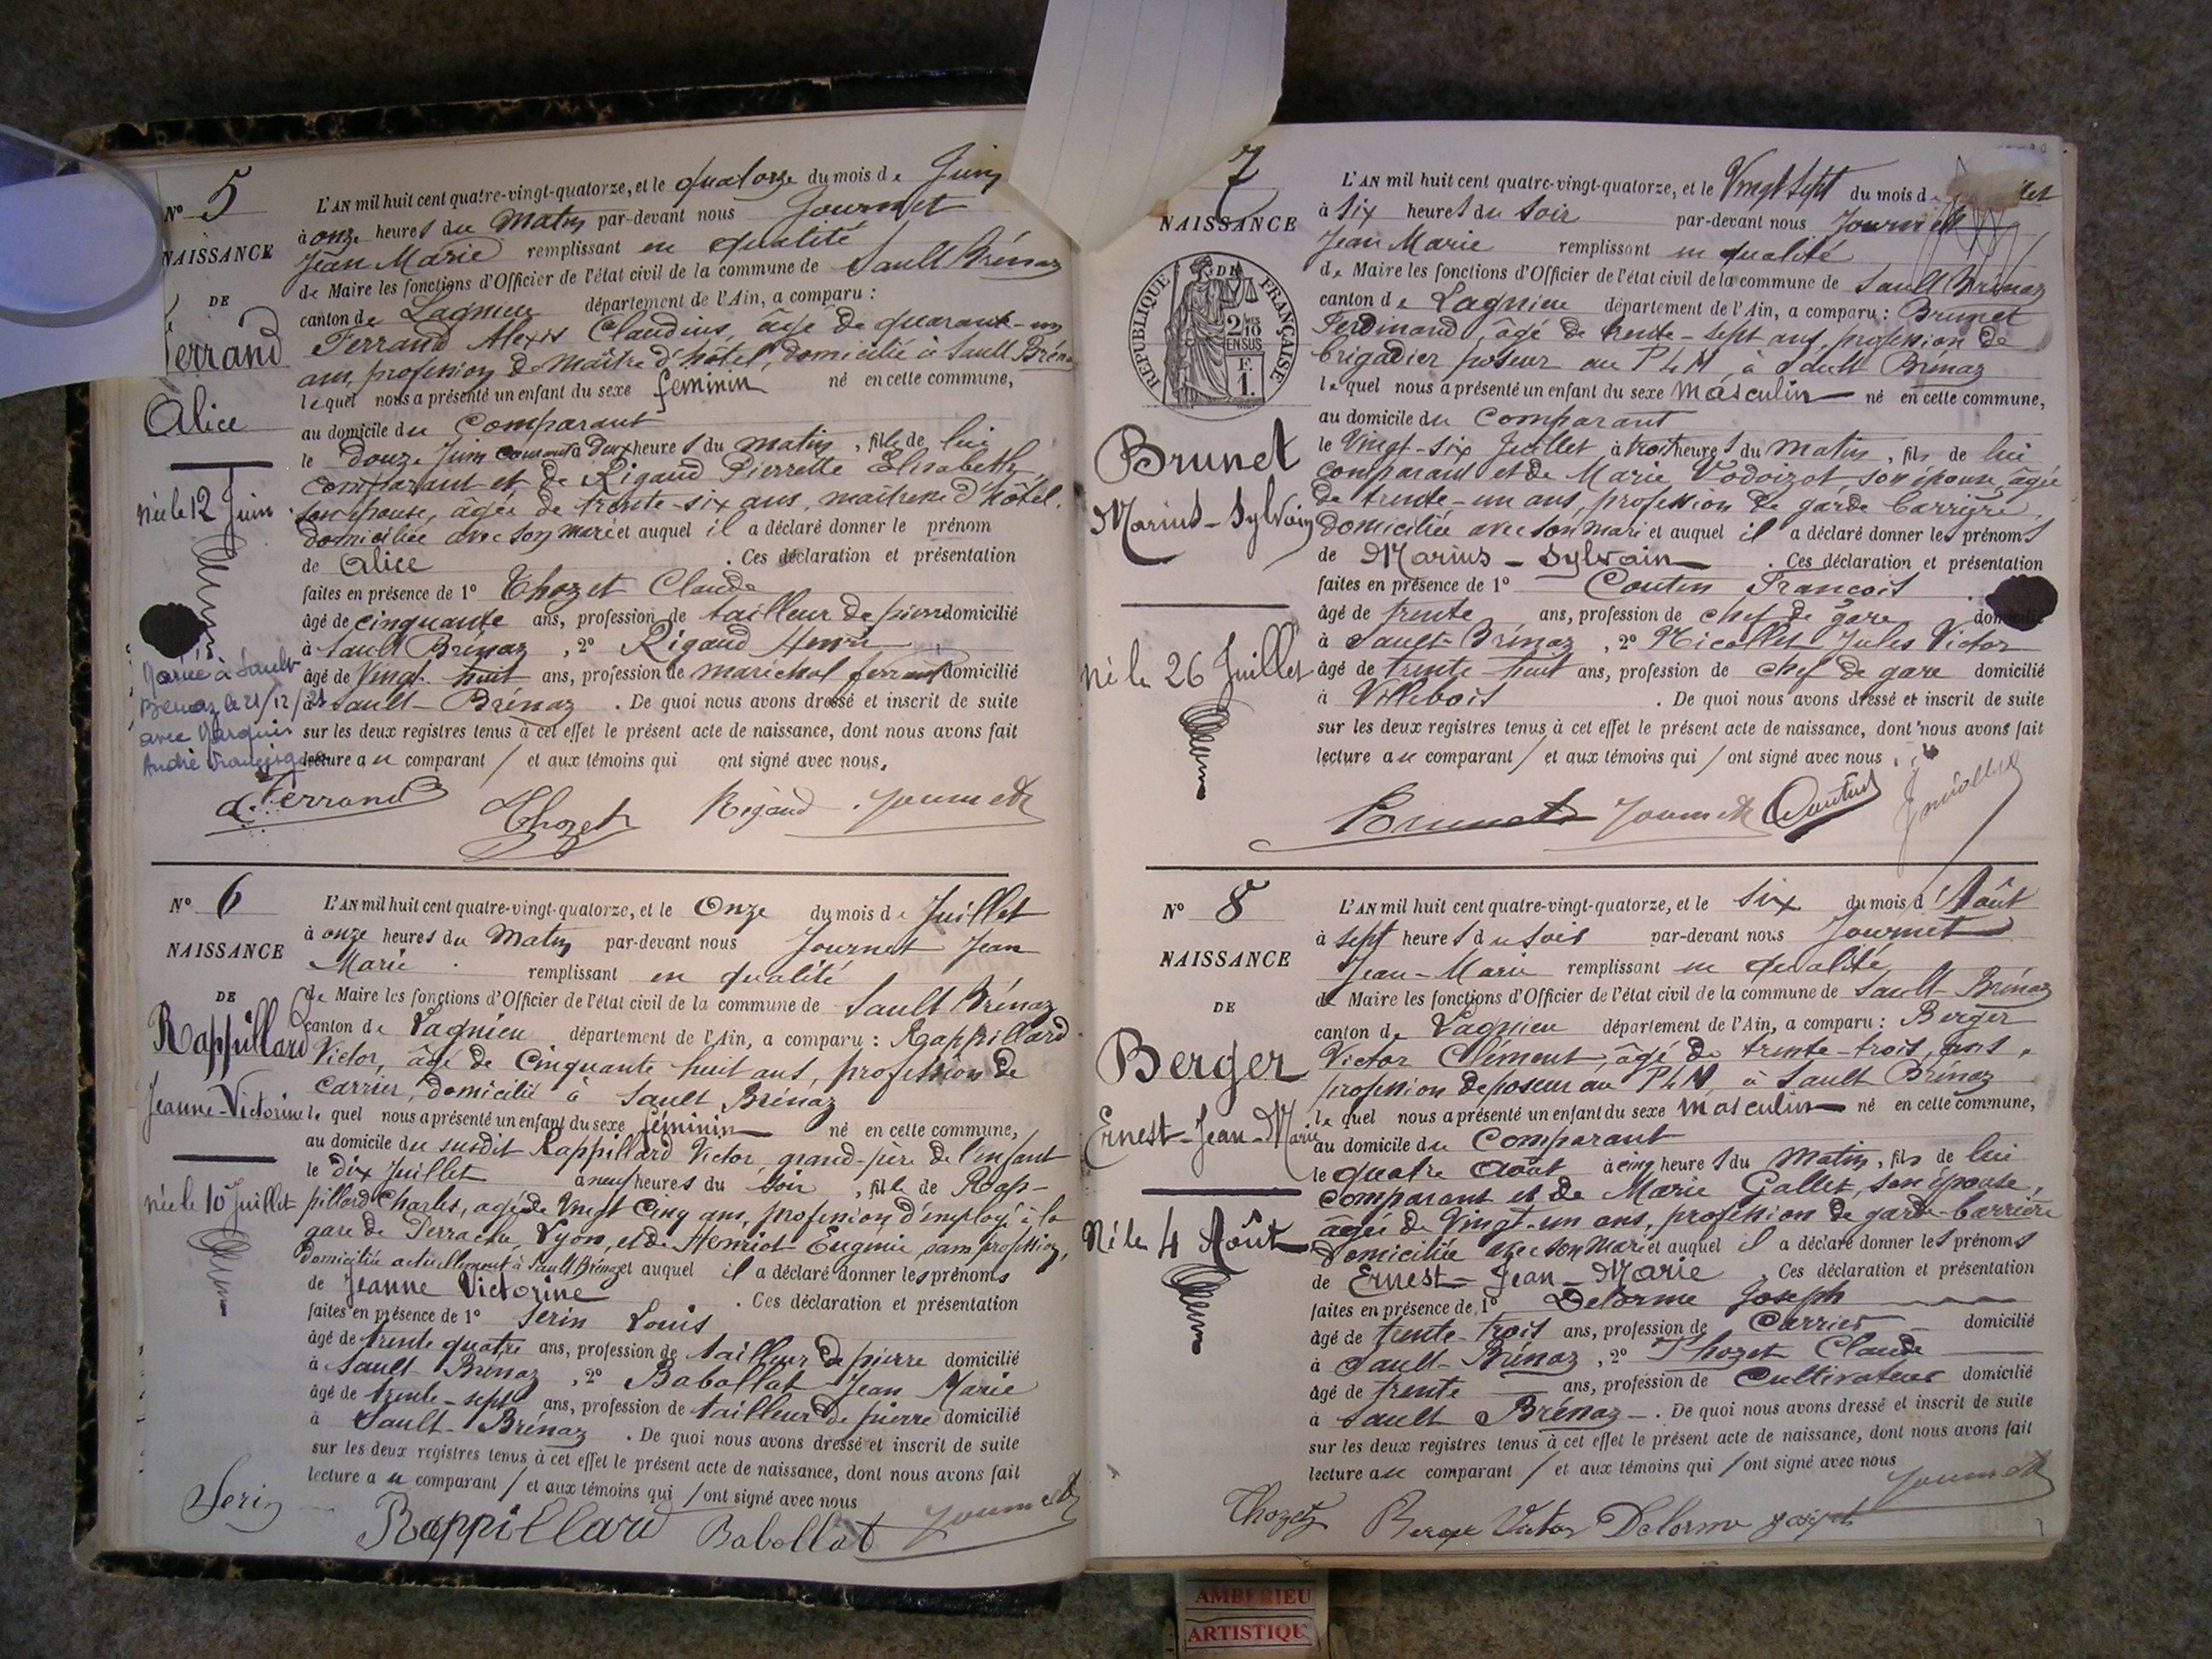 Nº 5
NAISSANCE
DE
Ferrand
Alice
née le 12 Juin
Mariée à Sault
Brenaz le 21/12/21
avec Marquis
André
L'AN mil huit cent quatre-vingt-quatorze, et le quatorze du mois de Juin
à onze heures du Matin par-devant nous Journet
Jean Marie remplissant en qualité
de Maire les fonctions d'Officier de l'état civil de la commune de Sault Brénaz
canton de Lagnieu département de l'Ain, a comparu :
Ferrand Alexis Claudius, âgé de quarante-un
ans, profession de Maître d'hôtel, domicilié à Sault Brénaz
lequel nous a présenté un enfant du sexe féminin né en cette commune,
au domicile du Comparant
le douze Juin courant à deux heures du matin, fille de lui
comparant et de Rigaud Pierrette Elisabeth,
son épouse, âgée de trente-six ans, maîtresse d'hôtel.
domiciliée avec son mari et auquel il a déclaré donner le prénom
de Alice . Ces déclaration et présentation
faites en présence de 1º Thozet Claude
âgé de cinquante ans, profession de tailleur de pierre domicilié
à Sault Brénaz, 2º Rigaud Henri
âgé de Vingt huit ans, profession de maréchal ferrant domicilié
à Sault-Brénaz . De quoi nous avons dressé et inscrit de suite
sur les deux registres tenus à cet effet le présent acte de naissance, dont nous avons fait
lecture au comparant / et aux témoins qui ont signé avec nous.
A. Ferrand Thozet Rigaud Journet
Nº 6
NAISSANCE
DE
Rappillard
Jeanne-Victorine
née le 10 Juillet
L'AN mil huit cent quatre-vingt-quatorze, et le Onze du mois de Juillet
à onze heures du Matin par-devant nous Journet Jean
Marie remplissant en qualité
de Maire les fonctions d'Officier de l'état civil de la commune de Sault Brénaz
canton de Lagnieu département de l'Ain, a comparu : Rappillard
Victor, âgé de Cinquante huit ans, profession de
Carrier, domicilié à Sault Brénaz
lequel nous a présenté un enfant du sexe féminin né en cette commune,
au domicile du susdit Rappillard Victor, grand-père de l'enfant
le dix Juillet à neuf heures du soir, fille de Rap-
pillard Charles, agé de Vingt Cinq ans, profession d'employé à la
gare de Perrache, Lyon, et de Henriot Eugénie sans profession,
domiciliée actuellement à Sault Brénaz et auquel il a déclaré donner les prénoms
de Jeanne Victorine . Ces déclaration et présentation
faites en présence de 1º Serin Louis
âgé de trente quatre ans, profession de tailleur de pierre domicilié
à Sault-Brénaz, 2º Babollat Jean Marie
âgé de trente-sept ans, profession de tailleur de pierre domicilié
à Sault-Brénaz . De quoi nous avons dressé et inscrit de suite
sur les deux registres tenus à cet effet le présent acte de naissance, dont nous avons fait
lecture au comparant / et aux témoins qui / ont signé avec nous
Serin Rappillard Babollat Journet
7
NAISSANCE
RÉPUBLIQUE FRANÇAISE
2/10 EN SUS
F. 1.
Brunet
Marius-Sylvain
né le 26 Juillet
L'AN mil huit cent quatre-vingt-quatorze, et le Vingt sept du mois de
à six heures du soir par-devant nous Journet
Jean Marie remplissant en qualité
de Maire les fonctions d'Officier de l'état civil de la commune de Sault Brénaz
canton de Lagnieu département de l'Ain, a comparu : Brunet
Ferdinand, âgé de trente-sept ans, profession de
brigadier poseur au PLM, à Sault Brénaz
lequel nous a présenté un enfant du sexe masculin né en cette commune,
au domicile du Comparant
le Vingt-six Juillet à trois heures du Matin, fils de lui
comparant et de Marie Vodoizot son épouse, âgée
de trente-un ans, profession de garde barrière,
domiciliée avec son mari et auquel il a déclaré donner les prénoms
de Marius-Sylvain . Ces déclaration et présentation
faites en présence de 1º Coutin François
âgé de trente ans, profession de chef de gare domicilié
à Sault-Brénaz, 2º Micollet Jules Victor
âgé de trente-huit ans, profession de chef de gare domicilié
à Villebois . De quoi nous avons dressé et inscrit de suite
sur les deux registres tenus à cet effet le présent acte de naissance, dont nous avons fait
lecture au comparant / et aux témoins qui / ont signé avec nous
Brunet Journet Coutin
Nº 8
NAISSANCE
DE
Berger
Ernest-Jean-Marie
Né le 4 Août
L'AN mil huit cent quatre-vingt-quatorze, et le six du mois d'Août
à sept heures du soir par-devant nous Journet
Jean-Marie remplissant en qualité
de Maire les fonctions d'Officier de l'état civil de la commune de Sault-Brénaz
canton de Lagnieu département de l'Ain, a comparu : Berger
Victor Clément, âgé de trente-trois ans,
profession de poseur au PLM, à Sault Brénaz
lequel nous a présenté un enfant du sexe masculin né en cette commune,
au domicile du Comparant
le quatre Août à cinq heures du Matin, fils de lui
comparant et de Marie Gallet, son épouse,
âgée de Vingt-un ans, profession de garde-barrière
domiciliée avec son mari et auquel il a déclaré donner les prénoms
de Ernest-Jean-Marie . Ces déclaration et présentation
faites en présence de 1º Delorme Joseph
âgé de trente-trois ans, profession de Carrier domicilié
à Sault-Brénaz, 2º Thozet Claude
âgé de trente ans, profession de Cultivateur domicilié
à Sault Brénaz. De quoi nous avons dressé et inscrit de suite
sur les deux registres tenus à cet effet le présent acte de naissance, dont nous avons fait
lecture au comparant / et aux témoins qui / ont signé avec nous
Journet
Thozet Berger Victor Delorme Joseph
AMBERIEU
ARTISTIQU